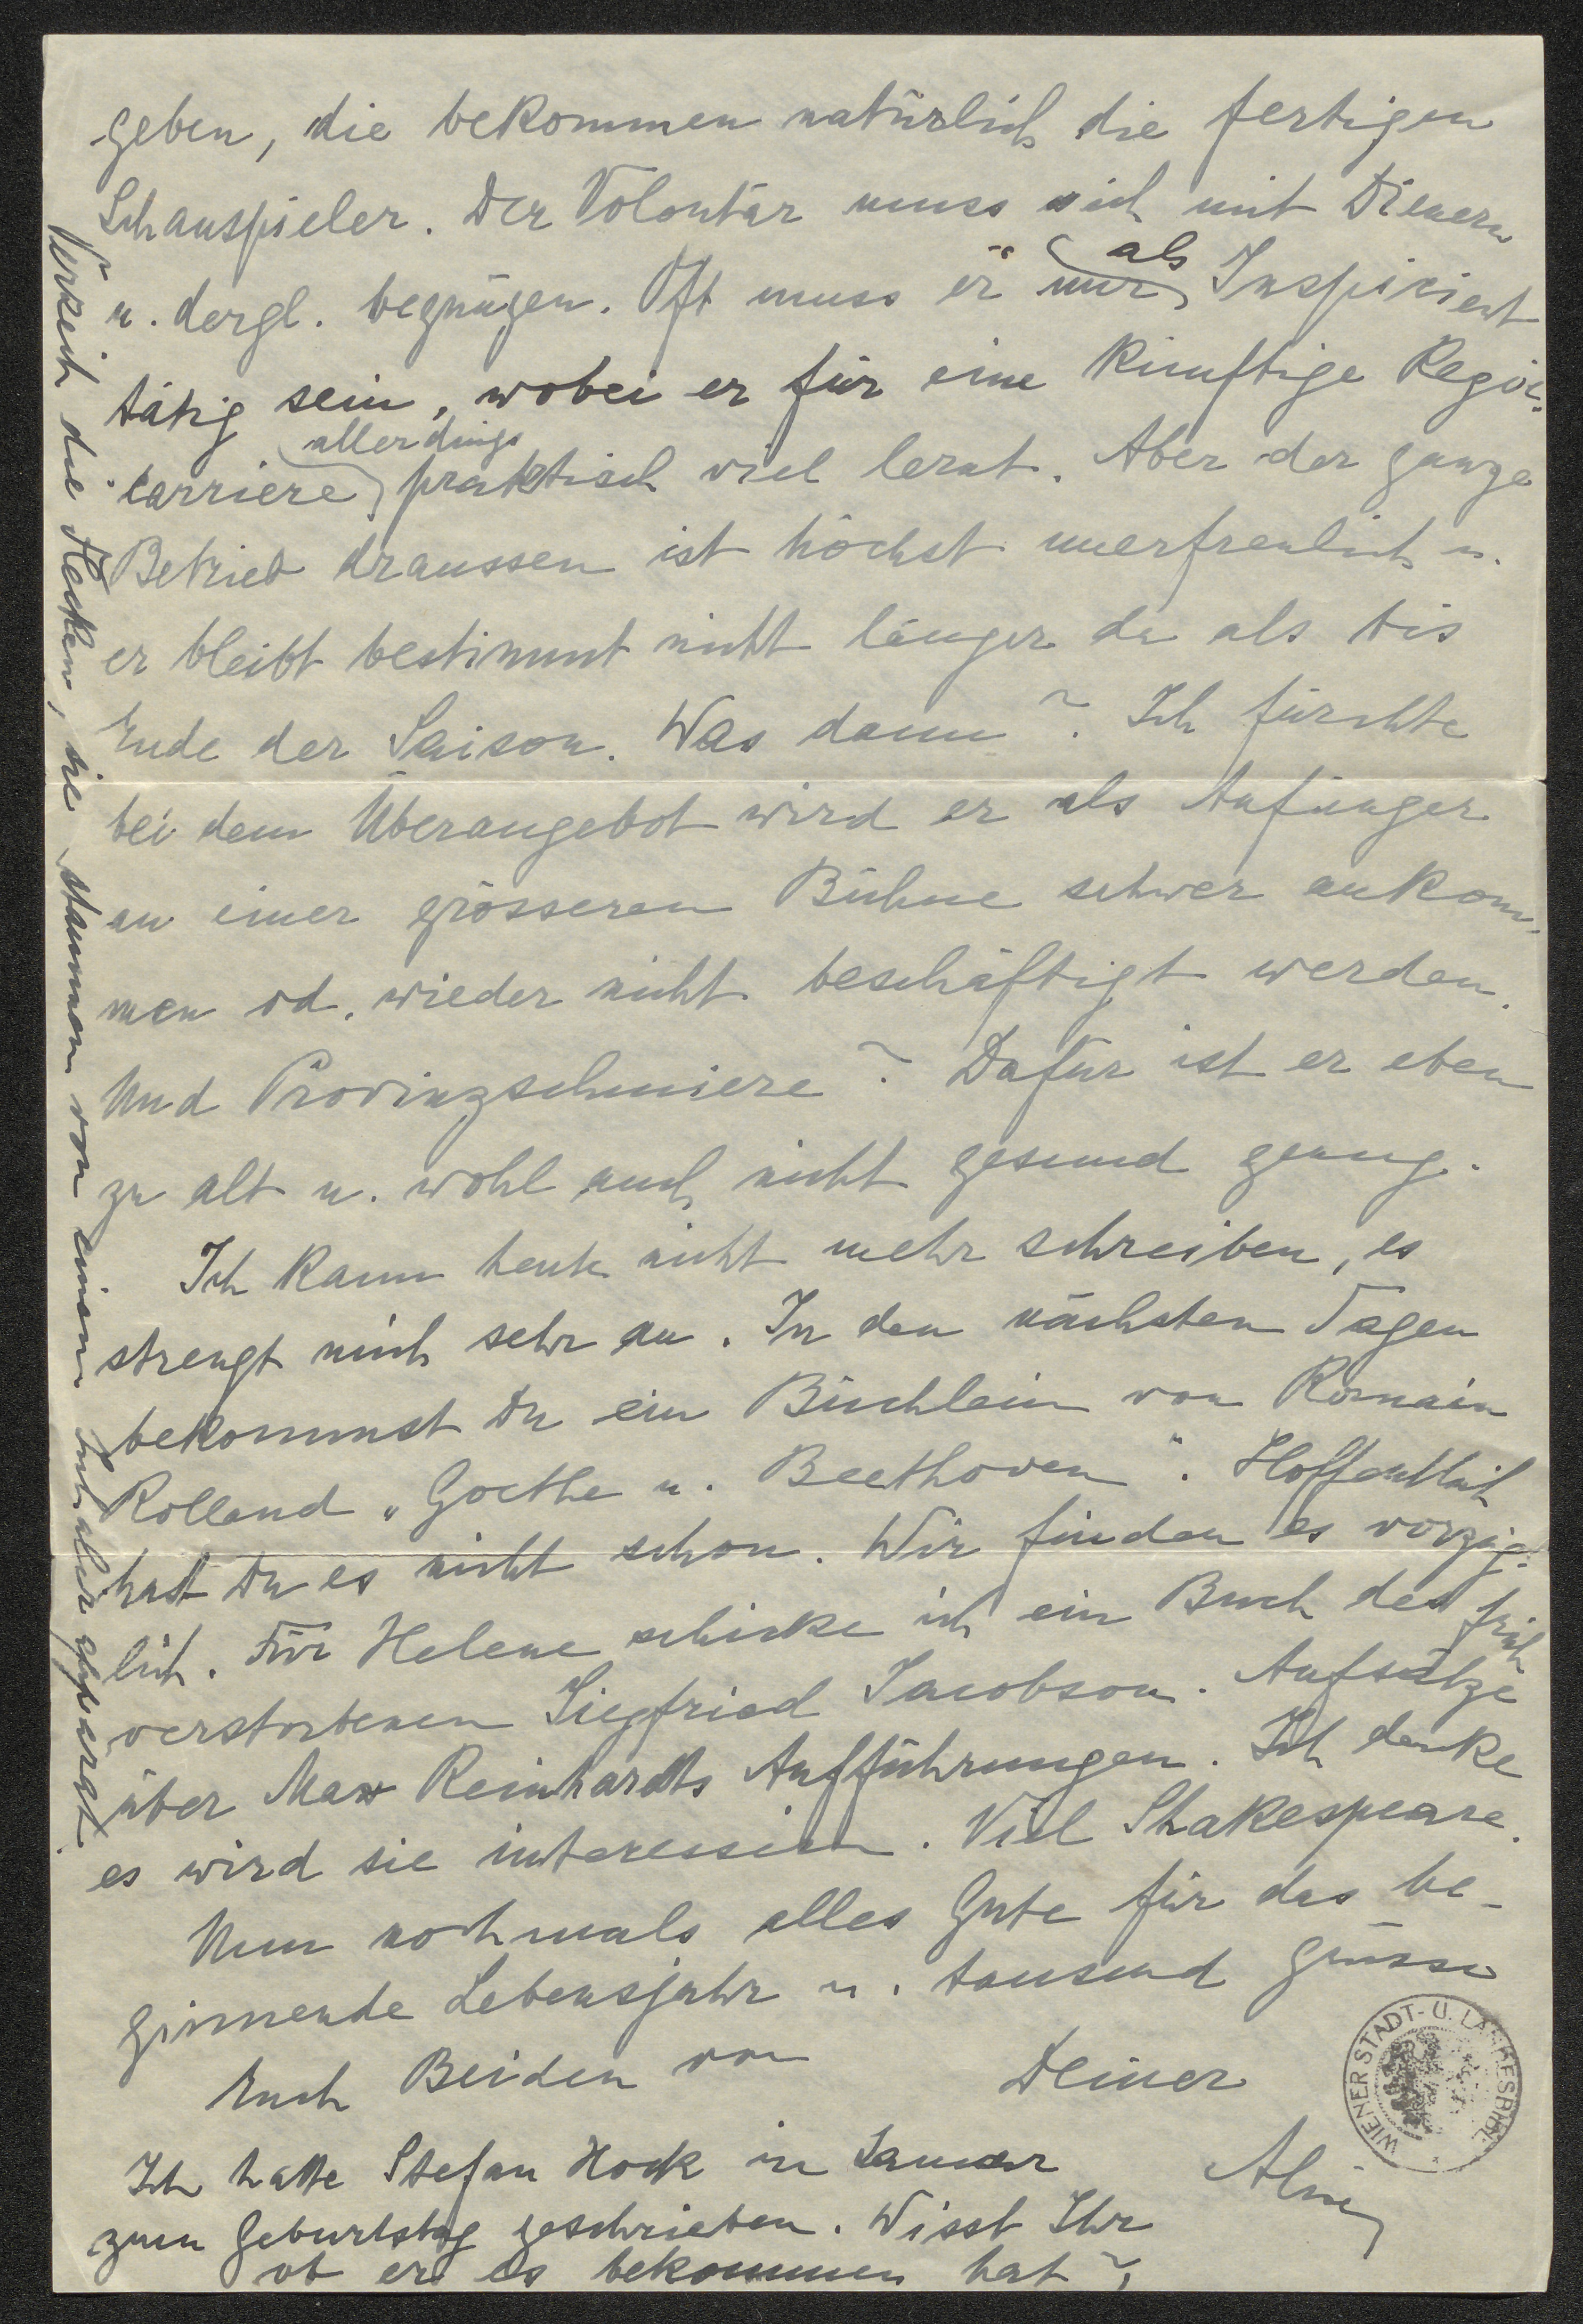 geben, die bekommen natürlich die fertigen
Schauspieler. Der Volontär muss sich mit Dienern
u. dergl. begnügen. Oft muss er nur als Inspizient
tätig sein, wobei er für eine künftige Regie-
carriere allerdings praktisch viel lernt. Aber der ganze
Betrieb draussen ist höchst unerfreulich u.
er bleibt bestimmt nicht länger da als bis
Ende der Saison. Was dann? Ich fürchte
bei dem Überangebot wird er als Anfänger
an einer grösseren Bühne schwer ankom-
men od. wieder nicht beschäftigt werden.
Und Provinzschmiere? Dafür ist er eben
zu alt u. wohl auch nicht gesund genug.
Ich kann heute nicht mehr schreiben, es
strengt mich sehr an. In den nächsten Tagen
bekommst Du ein Büchlein von Romain
Rolland „Goethe u. Beethoven". Hoffentlich
hast Du es nicht schon. Wir finden es vorzüg-
lich. Für Helene schicke ich ein Buch des früh
verstorbenen Siegfried Jacobson. Aufsätze
über Max Reinhardts Aufführungen. Ich denke
es wird sie interessieren. Viel Shakespeare.
Nun nochmals alles Gute für das be-
ginnende Lebensjahr u. tausend Grüsse
Euch Beiden von
Deiner
Ich hatte Stefan Hock im Januar
zum Geburtstag geschrieben. Wisst Ihr
ob er es bekommen hat?
Verzeih die Flecken, sie stammen von einem
WIENER STADT- U. LANDESBIBL.